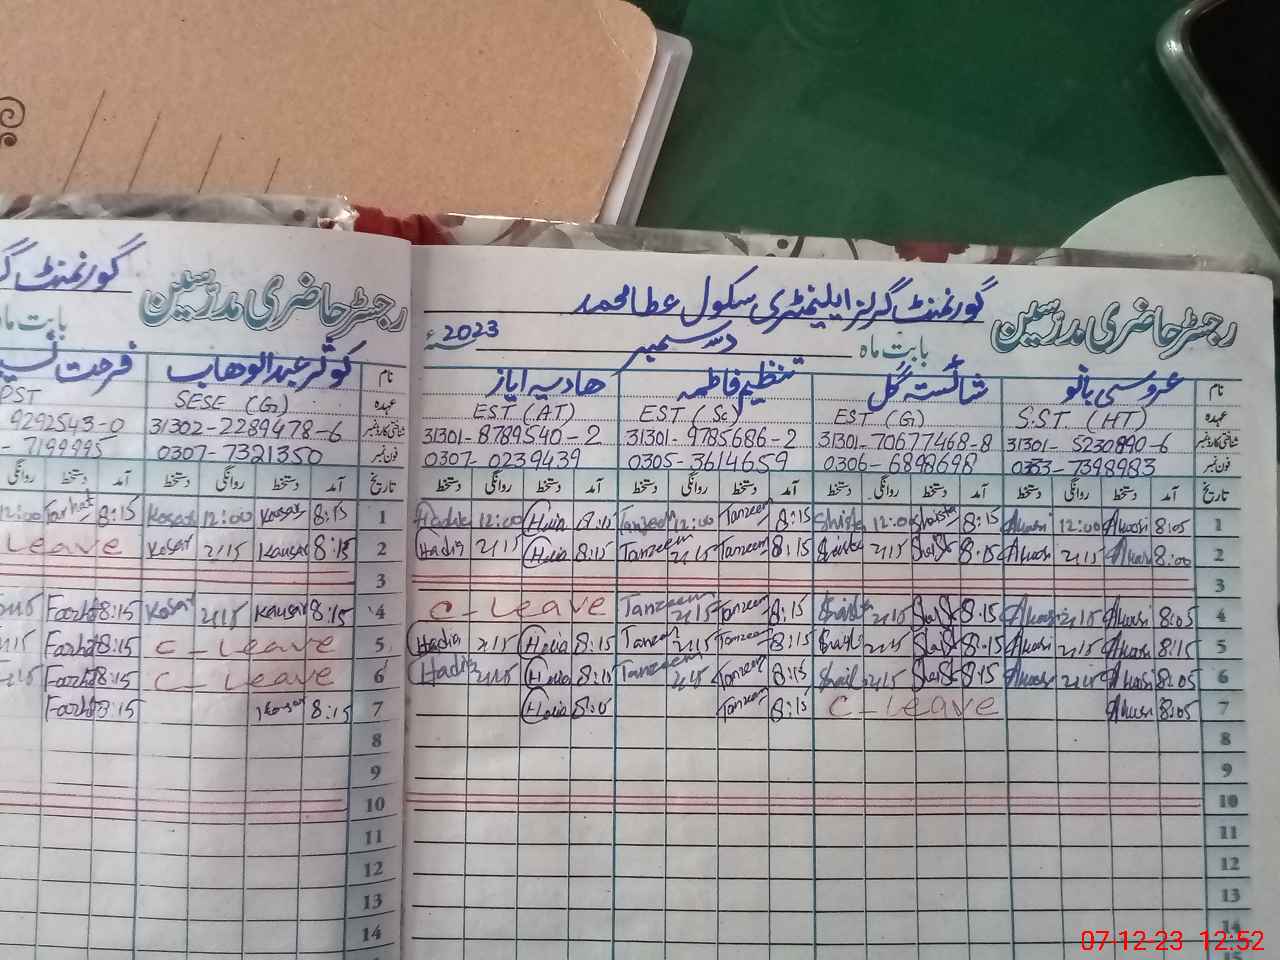 رجسٹر حاضری مدرسین گورنمنٹ گرلز ایلیمنٹری سکول عطا محمد
بابت ماہ دسمبر 2023ء
نام عروسی بانو شائستہ گل تنظیم فاطمہ ھادیہ ایاز
عہدہ S.S.T. (HT) EST (G) EST (Sc) EST (AT)
شناختی کارڈ نمبر 31301-5230890-6 31301-70677468-8 31301-9785686-2 31301-8789540-2
فون نمبر 0333-7398983 0306-6898698 0305-3614659 0307-0239439
تاریخ آمد دستخط روانگی دستخط آمد دستخط روانگی دستخط آمد دستخط روانگی دستخط آمد دستخط روانگی دستخط
1 8:05 12:00 8:15 Shaista 12:00 8:15 Tanzeem 12:00 Tanzeem 8:15 12:00
2 8:00 2:15 8:15 2:15 8:15 Tanzeem 2:15 Tanzeem 8:15 2:15 Hadia
3
4 8:05 2:15 8:15 2:15 8:15 Tanzeem 2:15 Tanzeem C-Leave
5 8:15 2:15 8:15 2:15 8:15 Tanzeem 2:15 8:15 2:15 Hadia
6 8:05 2:15 8:15 2:15 8:15 Tanzeem 2:15 Tanzeem 8:15 2:15 Hadia
7 8:05 C-Leave 8:15 Tanzeem
8
9
10
11
12
13
14
15
رجسٹر حاضری مدرسین گورنمنٹ
بابت ماہ
نام کوثر عبدالوھاب فرحت
عہدہ SESE (G) PST
شناختی کارڈ نمبر 31302-2289478-6 9292543-0
فون نمبر 0307-7321350 7199995
تاریخ آمد دستخط روانگی دستخط آمد دستخط روانگی
1 8:15 Kausar 12:00 8:15 Farhat 12:00
2 8:15 Kausar 2:15 Leave
3
4 8:15 Kausar 2:15 8:15
5 C-Leave 8:15
6 C-Leave 8:15
7 8:15 Kausar 8:15
8
9
10
11
12
13
14
07-12-23 12:52